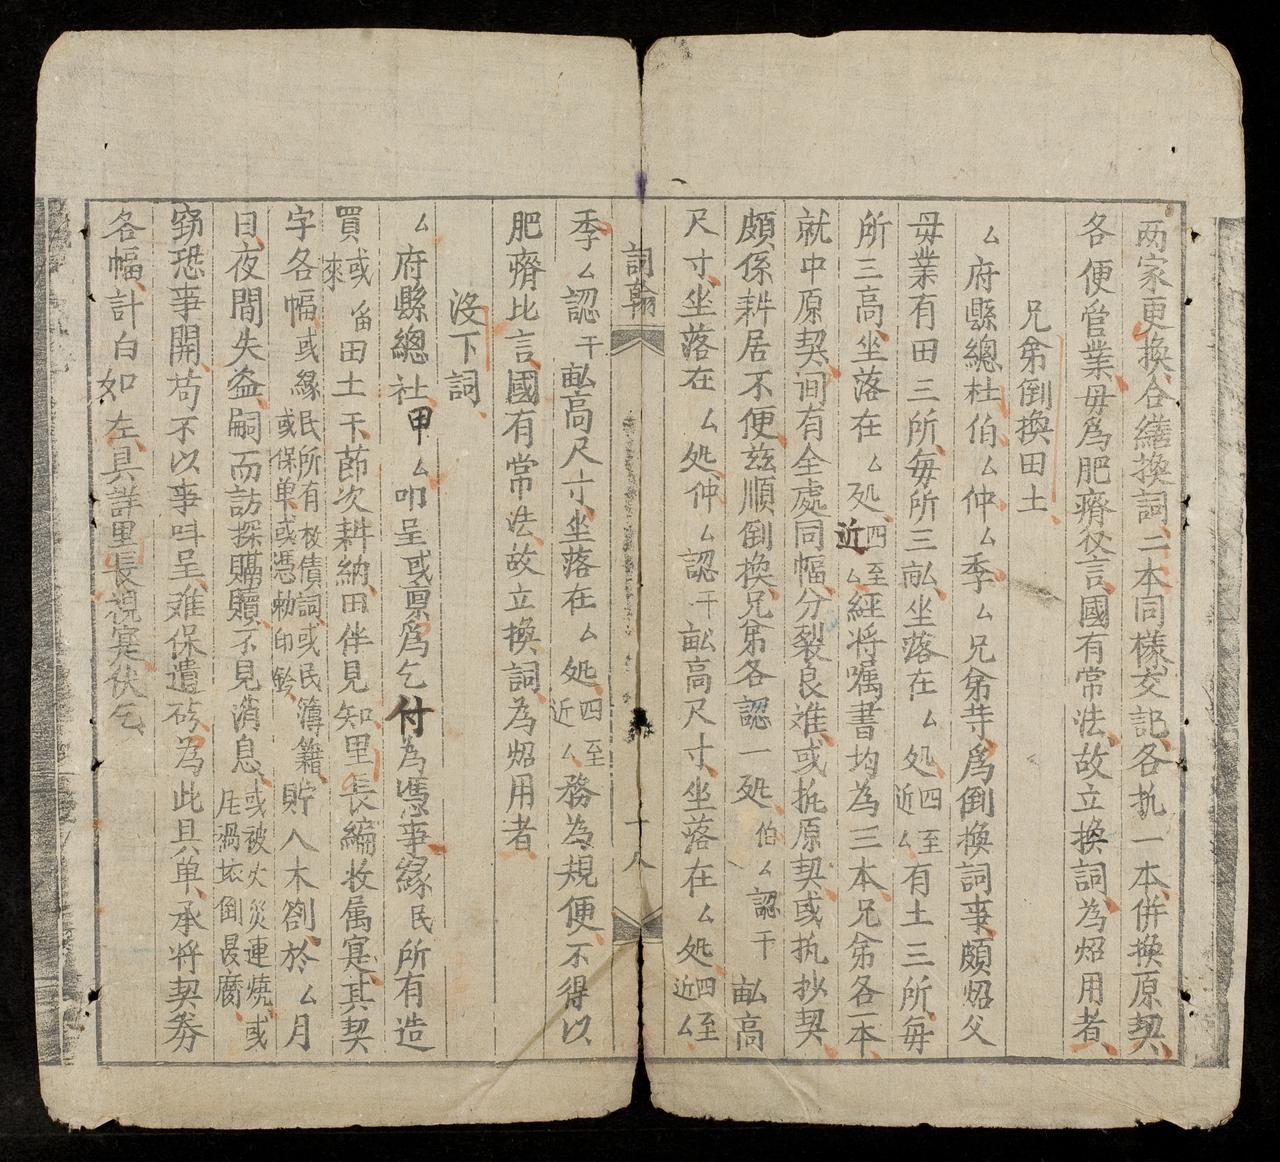 两家更換合繕換詞二本同樣交記各执一本併換原契
各便管業毋爲肥瘠爻言國有常法故立換詞為炤用者
兄弟倒換田土
厶府縣總社伯厶仲厶季厶兄弟等爲倒換詞事頗炤父
母業有田三所每所三畝坐落在厶处四至近厶有土三所每
所三高坐落在厶处四至近厶經将囑書均為三本兄弟各一本
就中原契间有全處同幅分裂良难或执原契或执抄契
頗係耕居不便玆順倒換兄弟各認一处伯厶認干畝高
尺寸坐落在厶处仲厶認干畝高尺寸坐落在厶处四至近厶
詞翰
十八
季厶認干畝高尺寸坐落在厶处四至近厶務為規便不得以
肥瘠比言國有常法故立換詞為炤用者
沒下詞
厶府縣總社甲厶叩呈或禀爲乞付為憑事緣民所有造
買或來畱田土干節次耕納田伴見知里長編收属寔其契
字各幅或緣民所有枚債詞或民簿籍或保单或憑勑印鈐貯入木劄於厶月
日夜間失盗嗣而訪探購贖不見消息或被火災連燒或压禍坺倒晸腐
窃恐事開苟不以事呌呈难保遺砖為此具单承将契券
各幅計白如左具詳里長視寔伏乞